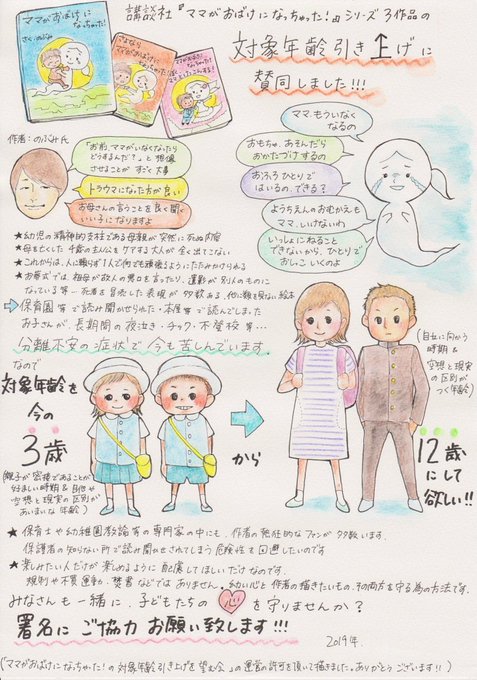 講談社『ママがおばけになっちゃった!』シリーズ3作品の
対象年齢引き上げに
賛同しました!!!
ママがおばけになっちゃった!
さく・のぶみ
さよなら
ママがおばけになっちゃった!
作者:のぶみ氏
「お前、ママがいなくなったら
どうするんだ?」と想像
させることが すごく大事
トラウマになった方が良い
お母さんの言うことを良く聞く
いい子になりますよ
ママ、もういなく
なるの
おもちゃ、あそんだら
おかたづけするの
おふろ ひとりで
はいるの、できる?
ようちえんのおむかえも
ママ、いけないわ
いっしょにねること
できないから、ひとりで
おしっこ いくのよ
★幼児の精神的支柱である母親が突然に死ぬ内容
★母を亡くした4歳の主人公をケアする大人が全く出てこない
★これからは、人に頼らず1人で何でも頑張るようにたたみかけられる
★お葬式では、祖母が故人の悪口を言ったり、遺影が別人のものに
なっている等…死者を冒涜した表現が多数ある、他に類を現ない絵本
保育園等で読み聞かせられた・本屋等で読んでしまった
お子さんが、長期間の夜泣き・チック・不登校等…
分離不安の症状で今も苦しんでいます。
なので
対象年齢を
今の
3歳
(親子が密接であることが
好ましい時期&自他や
空想と現実の区別が
あいまいな年齢)
から
(自立に向かう
時期&
空想と現実
の区別が
つく年齢)
12歳
にして
欲しい!!
★保育士や幼稚園教諭等の専門家の中にも、作者の熱狂的なファンが多数います。
保護者の知らない所で読み聞かせされてしまう危険性を回避したいのです
★楽しみたい人だけが楽しめるように配慮してほしいだけなのです。
規制や不買運動、焚書などではありません。幼い心と作者の描きたいもの、その両方を守る為の方法です。
みなさんも一緒に、子どもたちの心を守りませんか?
署名にご協力お願い致します!!!
2019年.
(「ママがおばけになっちゃった!の対象年齢引き上げを望む会」の運営の許可を頂いて描きました。ありがとうございます!!)